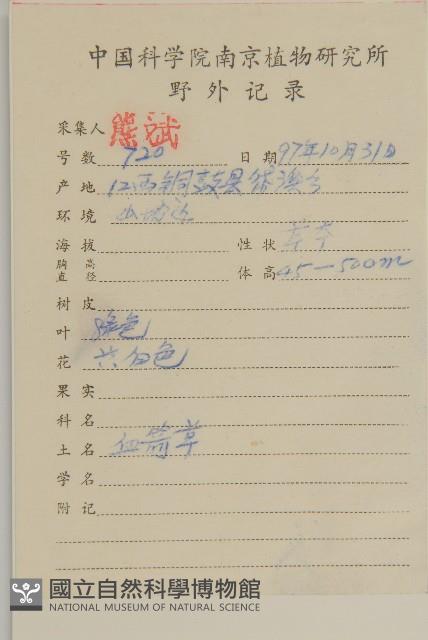 中国科学院南京植物研究所
野外记录
采集人 熊斌
号数 720 日期 97年10月31日
产地 江西铜鼓县
环境 山坡
海拔 性状 草本
胸高直径 体高 45—500m
树皮
叶 绿色
花 白色
果实
科名
土名 血箭草
学名
附记
國立自然科學博物館
NATIONAL MUSEUM OF NATURAL SCIENCE